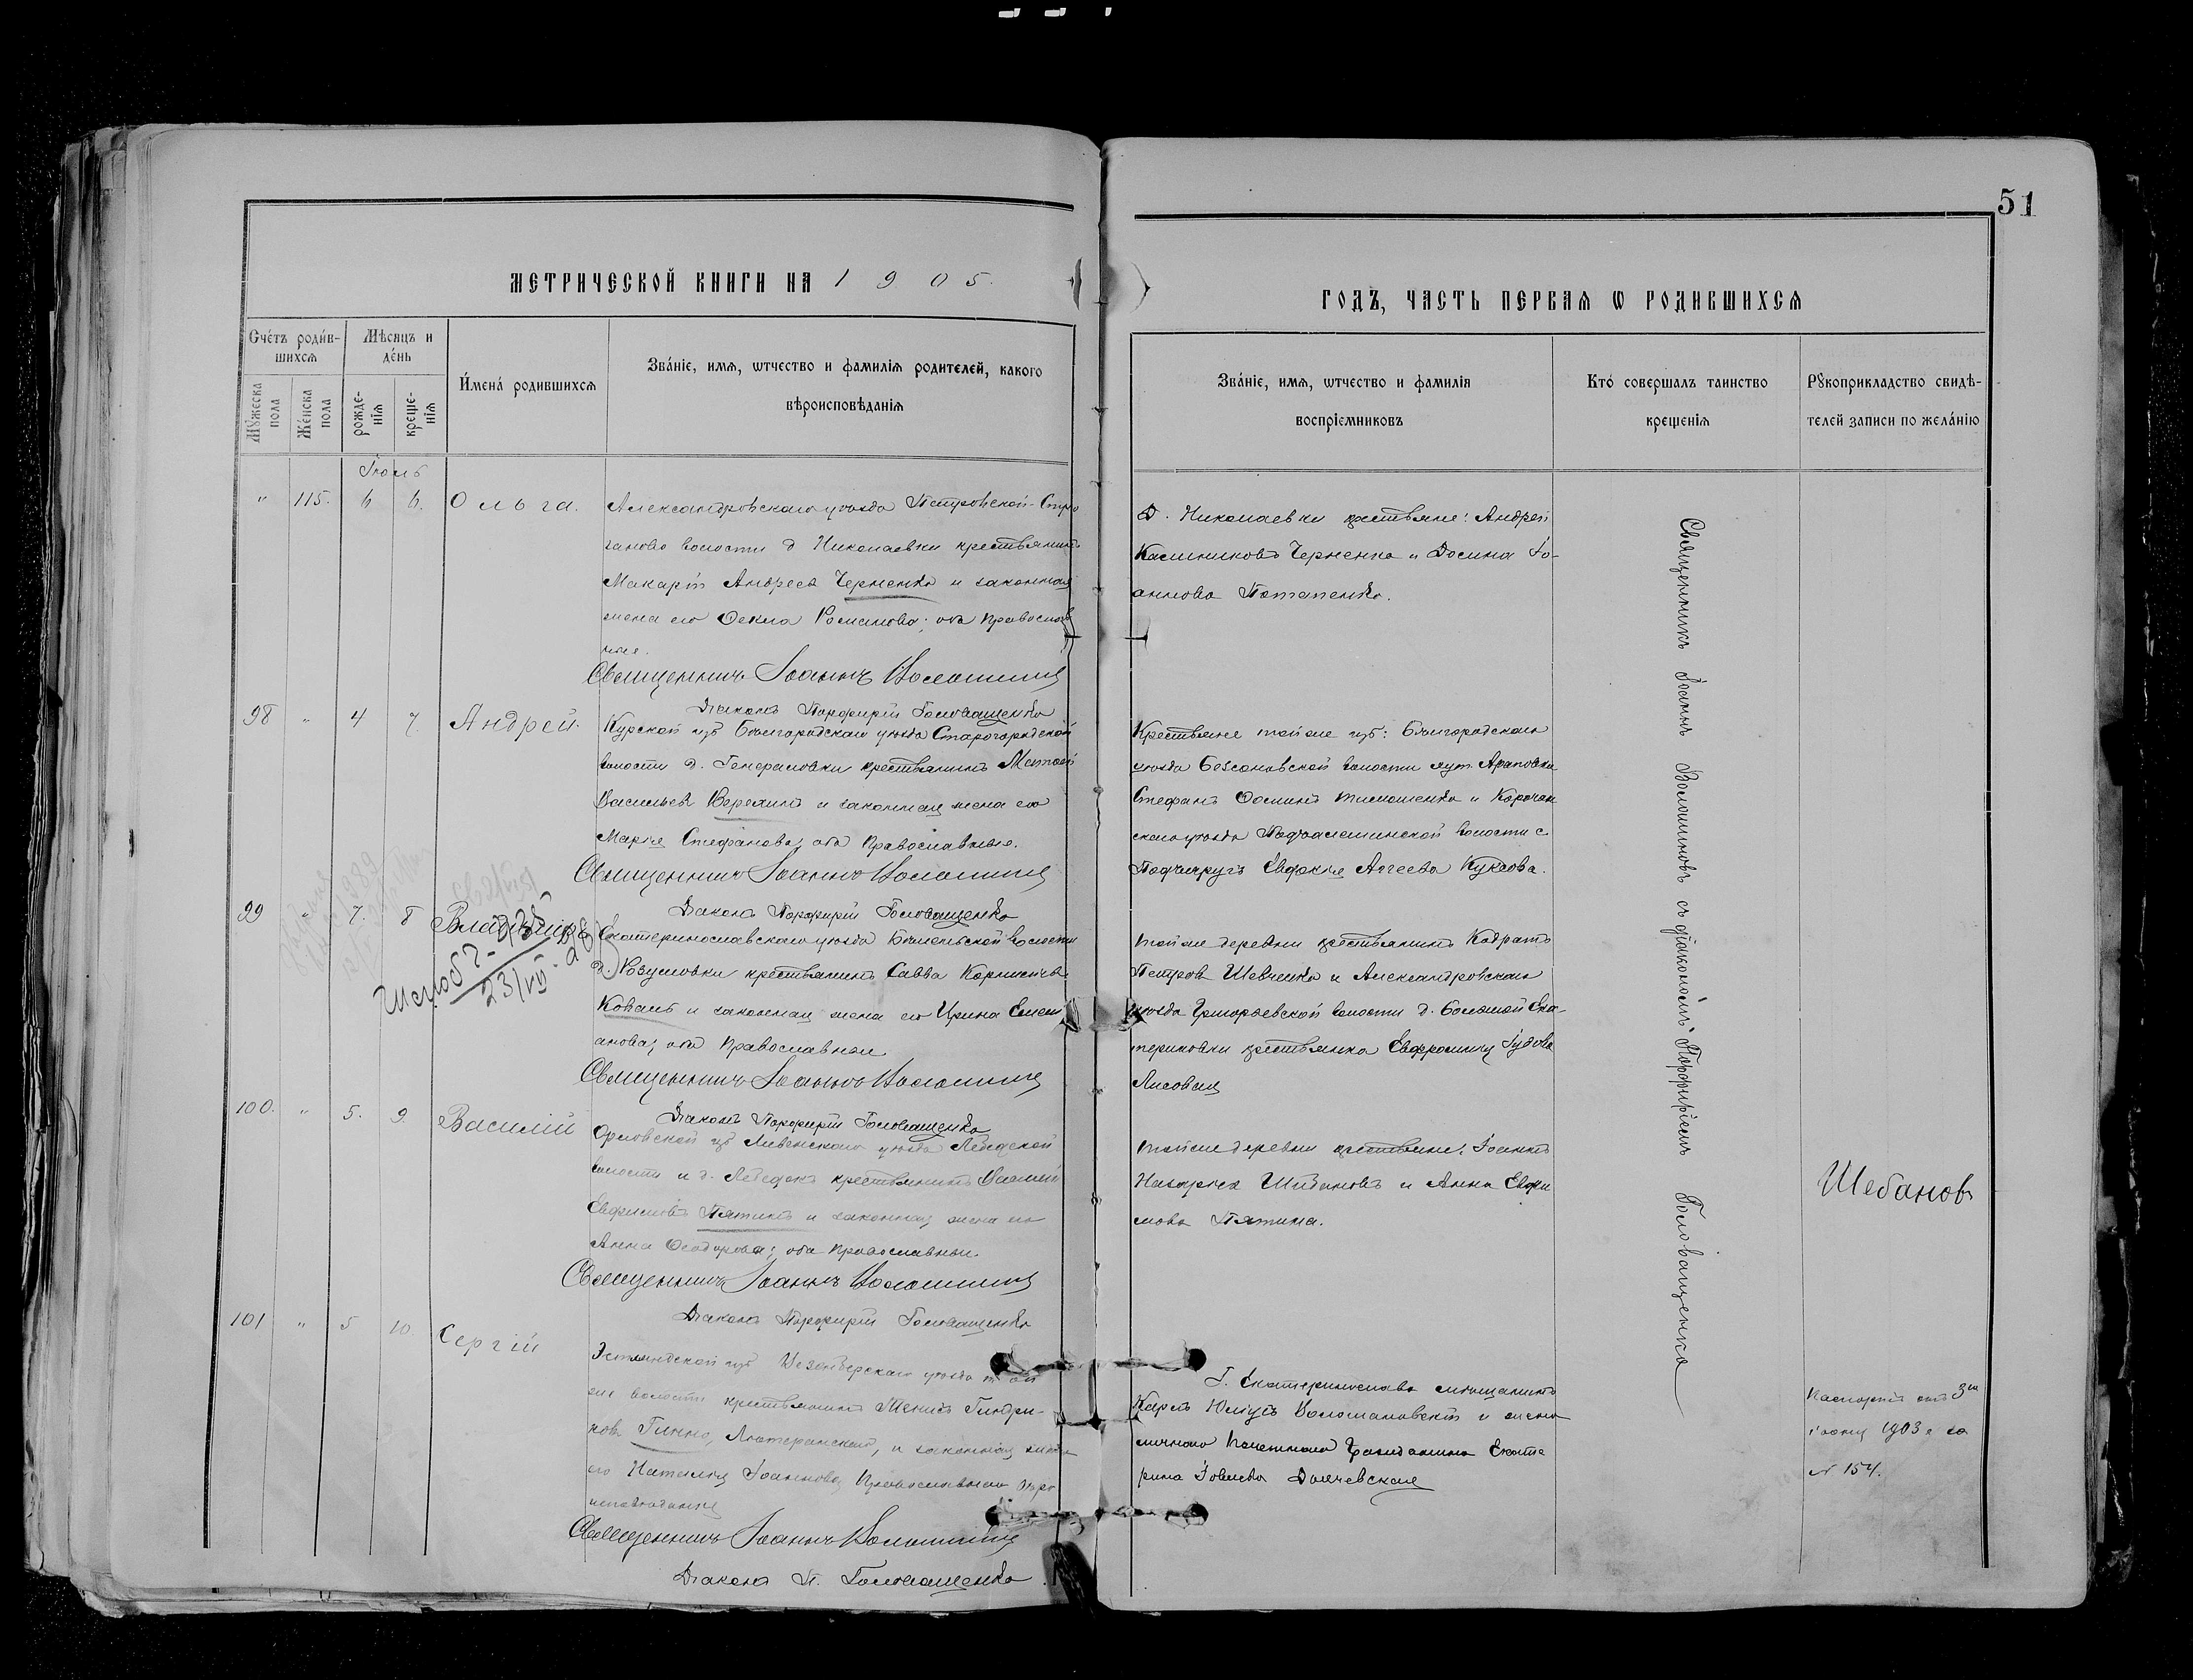 51
МЕТРИЧЕСКОЙ КНИГИ НА 1905.
ГОДЪ, ЧАСТЬ ПЕРВАЯ Ѡ РОДИВШИХСЯ
Сче́тъ роди́в-
шихсѧ
Мѣсяцъ и
де́нь
Мꙋжеска
пола
Же́нска
пола
рожде-
нїѧ
креще-
нїѧ
И́мена́ родившихсѧ
Зва́нїе, имѧ, ѿтчество и фамилїѧ родителей, какого
вѣроисповѣданїѧ
Зва́нїе, имѧ, ѿтчество и фамилїѧ
воспрїемниковъ
Кто́ совершалъ таинство
крещенїѧ
Рꙋкоприкладство свидѣ-
телей записи по жела́нїю
Іюль
" 115. 6 6. Ольга.
Александровскаго уѣзда Петровской-Стро
ганово волости д Николаевки крестьянинъ
Макарій Андреев Черненко и законная
жена его Ѳекла Романова; оба православ
ные.
Священникъ Іоаннъ Волошинъ
Діаконъ Порфирій Головащенко
Д. Николаевки крестьяне: Андрей
Черненко и
аннова Потапенко.
98 " 4 7. Андрей.
Курской губ Бѣлгородскаго уѣзда Старогородской
волости д. Генераловки крестьянинъ Матѳей
Васильев и законная жена его
Марія Стефанова; оба Православные.
Священникъ Іоаннъ Волошинъ
Діаконъ Порфирій Головащенко
Крестьяне той же губ: Бѣлгородскаго
уѣзда Безсоновской волости хут. Араповки
Стефанъ Ѳоминъ Тимошенко и Корочан
скаго уѣзда волости с.
Евдокія Агеева
99 " 7. 8 Владиміръ
Екатеринославскаго уѣзда волости
д. Розумовки крестьянинъ Савва Корнилiев
Коваль и законная жена его Ирина Емель
анова; оба Православные
Священникъ Іоаннъ Волошинъ
Діаконъ Порфирій Головащенко
23/VII
Той же деревни крестьянинъ Кодратъ
Петров Шевченко и Александровскаго
уѣзда Григорьевской волости д. Большой Ека-
териновки крестьянка Евфросинія
Лисовая
100. " 5. 9. Василій
Орловской губ Ливенскаго уѣзда
волости и д. крестьянинъ Василій
Евфимовъ Пятинъ и законная жена его
Анна Ѳеодорова; оба православные.
Священникъ Іоаннъ Волошинъ
Діаконъ Порфирій Головащенко
Той же деревни крестьяне: Іоаннъ
Назарьев Шебановъ и Анна Евфи
мова Пятина.
Шебановъ
101 " 5 10. Сергій
Эстляндской губ Везенбергскаго уѣзда той
же волости крестьянинъ Тенисъ Гиндри-
ковъ Гинно, Лютеранской, и законная жена
его Наталія Іоаннова Православнаго вѣро
исповѣданія
Священникъ Іоаннъ Волошинъ
Діаконъ П. Головащенко
Г. Екатеринослава мѣщанинъ
Карлъ и жена
личнаго Почетнаго Гражданина Екате
рина
Паспортъ отъ 3го
1903 г за
№ 154.
Священникъ Іоаннъ Волошиновъ съ діакономъ Порфиріемъ Головащенко